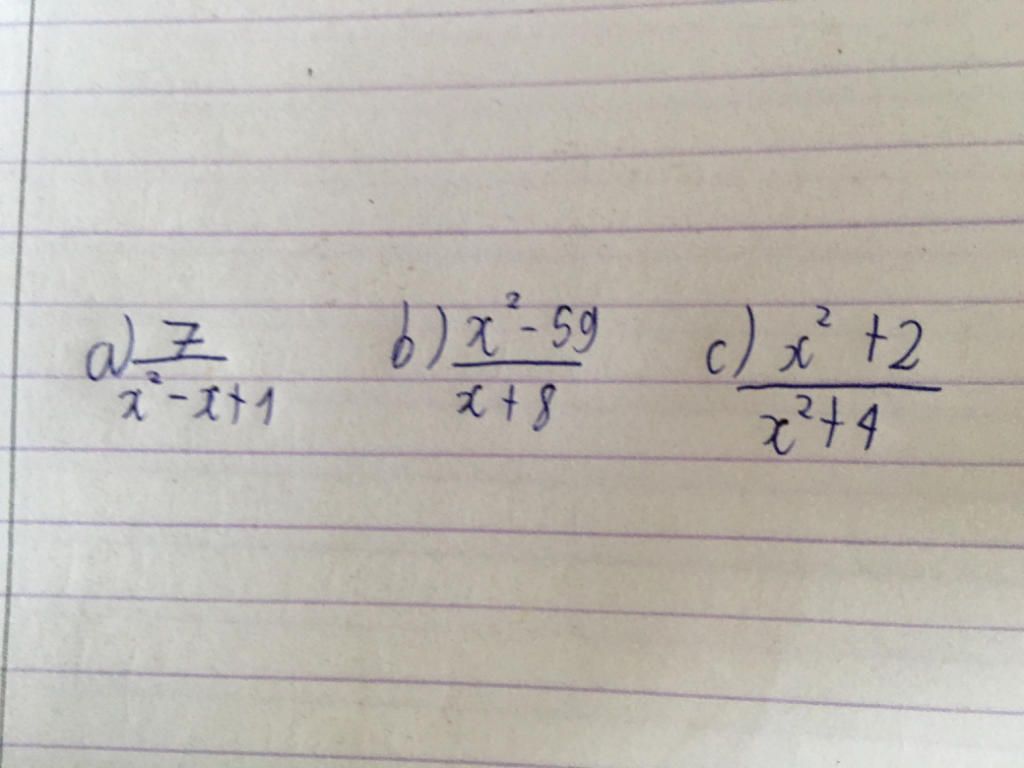 a) 7/(x²-x+1) b) (x²-59)/(x+8) c) (x²+2)/(x²+4)